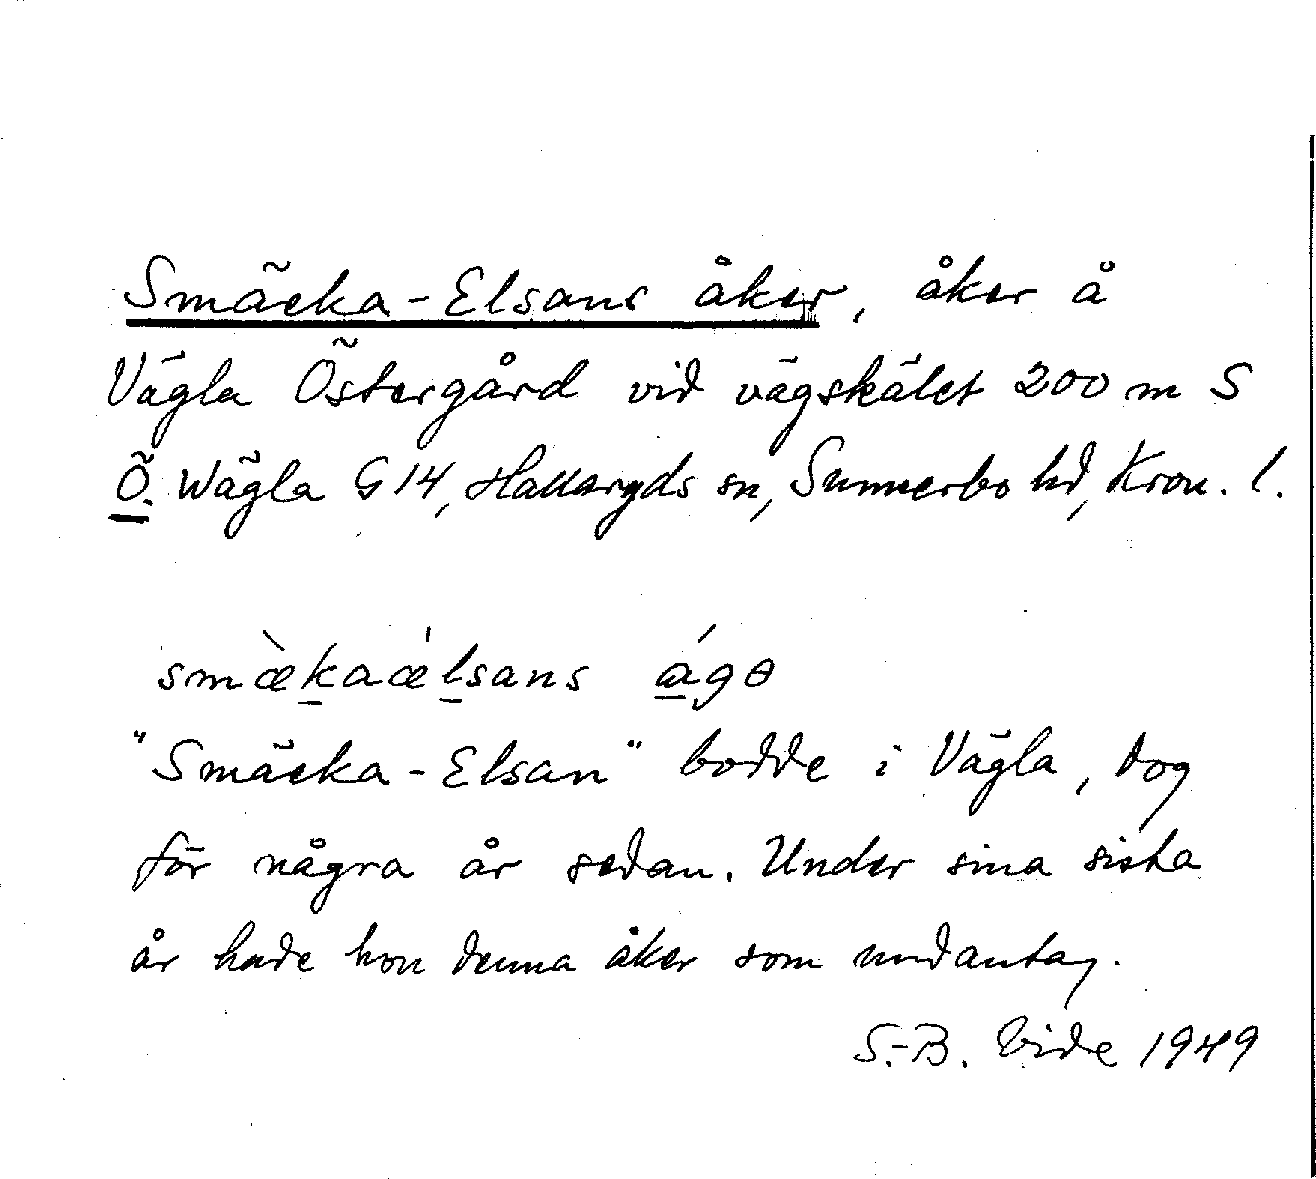 Smäcka-Elsans åker, åker å
Vägla Östergård vid vägskälet 200 m S
Ö. Wägla G 14, Hallaryds sn, Sunnerbo hd, Kron. l.
smæ̀kaæ̍lsans ágə
"Smäcka-Elsan" bodde i Vägla, dog
för några år sedan. Under sina sista
år hade hon denna åker som undantag.
S.-B. Vide 1949